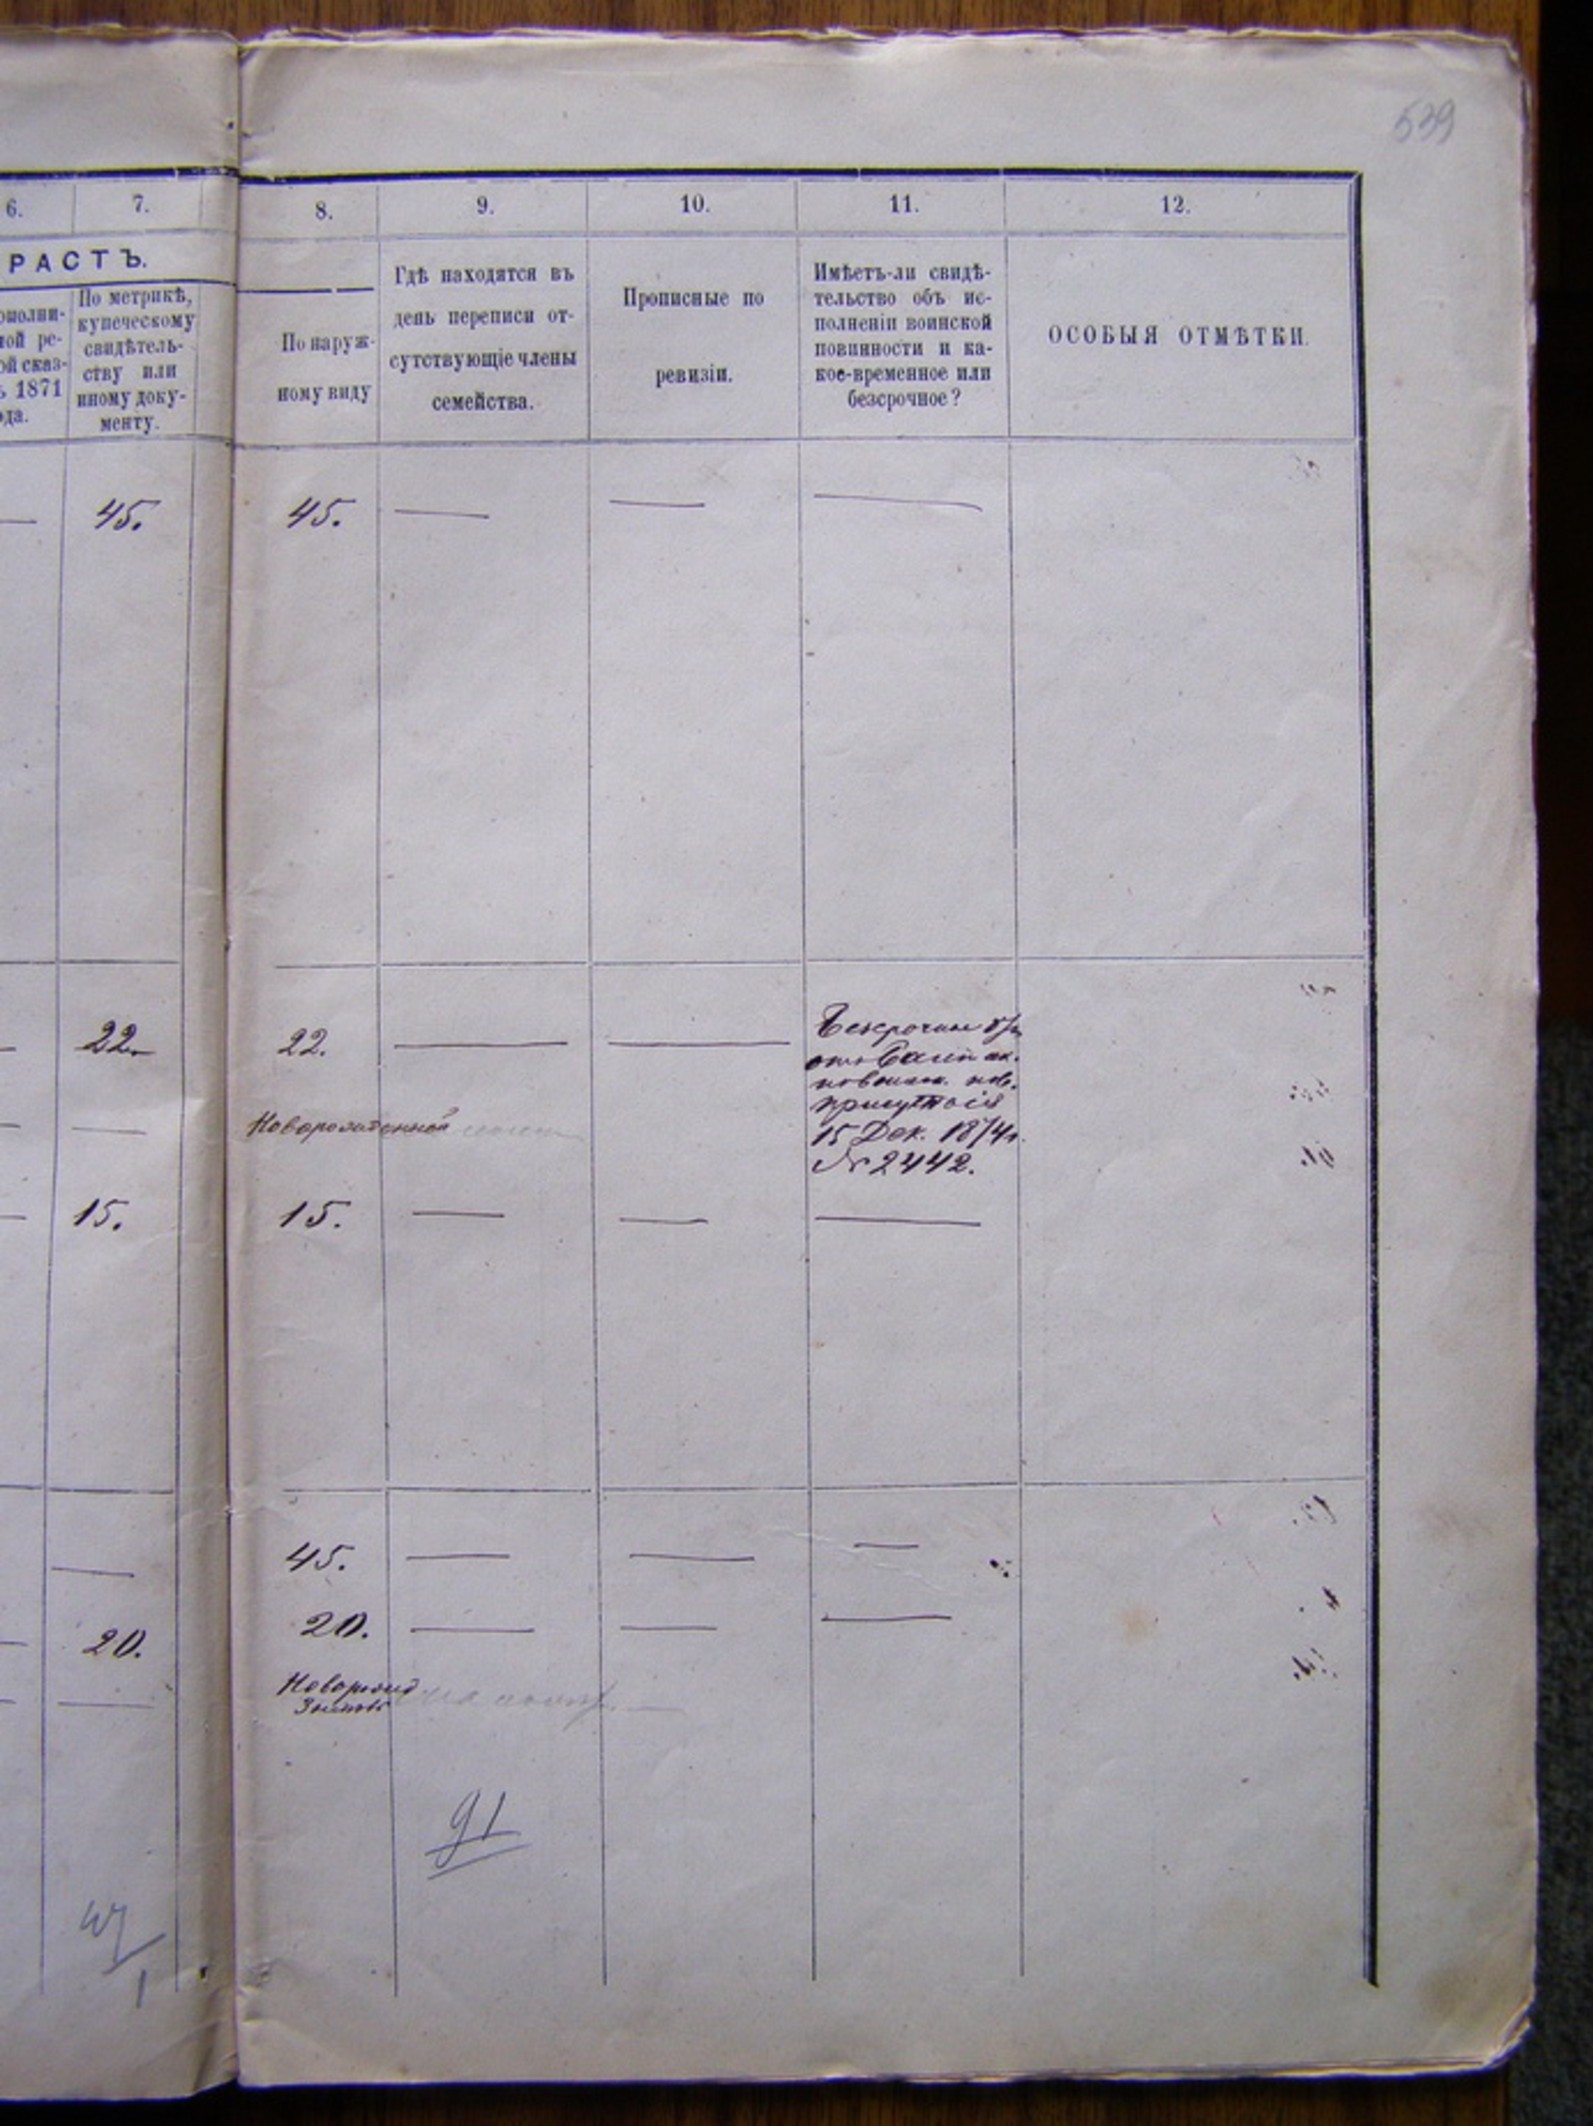 539
6. 7. 8. 9. 10. 11. 12.
РАСТЪ.
ополни-
ной ре-
ой сказ-
ѣ 1871
ода.
По метрикѣ,
купеческому
свидѣтель-
ству или
иному доку-
менту.
По наруж-
ному виду
Гдѣ находятся въ
день переписи от-
сутствующіе члены
семейства.
Прописные по
ревизіи.
Имѣетъ-ли свидѣ-
тельство объ ис-
полненіи воинской
повинности и ка-
кое-временное или
безсрочное?
ОСОБЫЯ ОТМѢТКИ.
45. 45.
22. 22.
присутствія
15 Дек. 1874 г.
№ 2442.
Новорожденной
15. 15.
45.
20. 20.
Новорожд
91